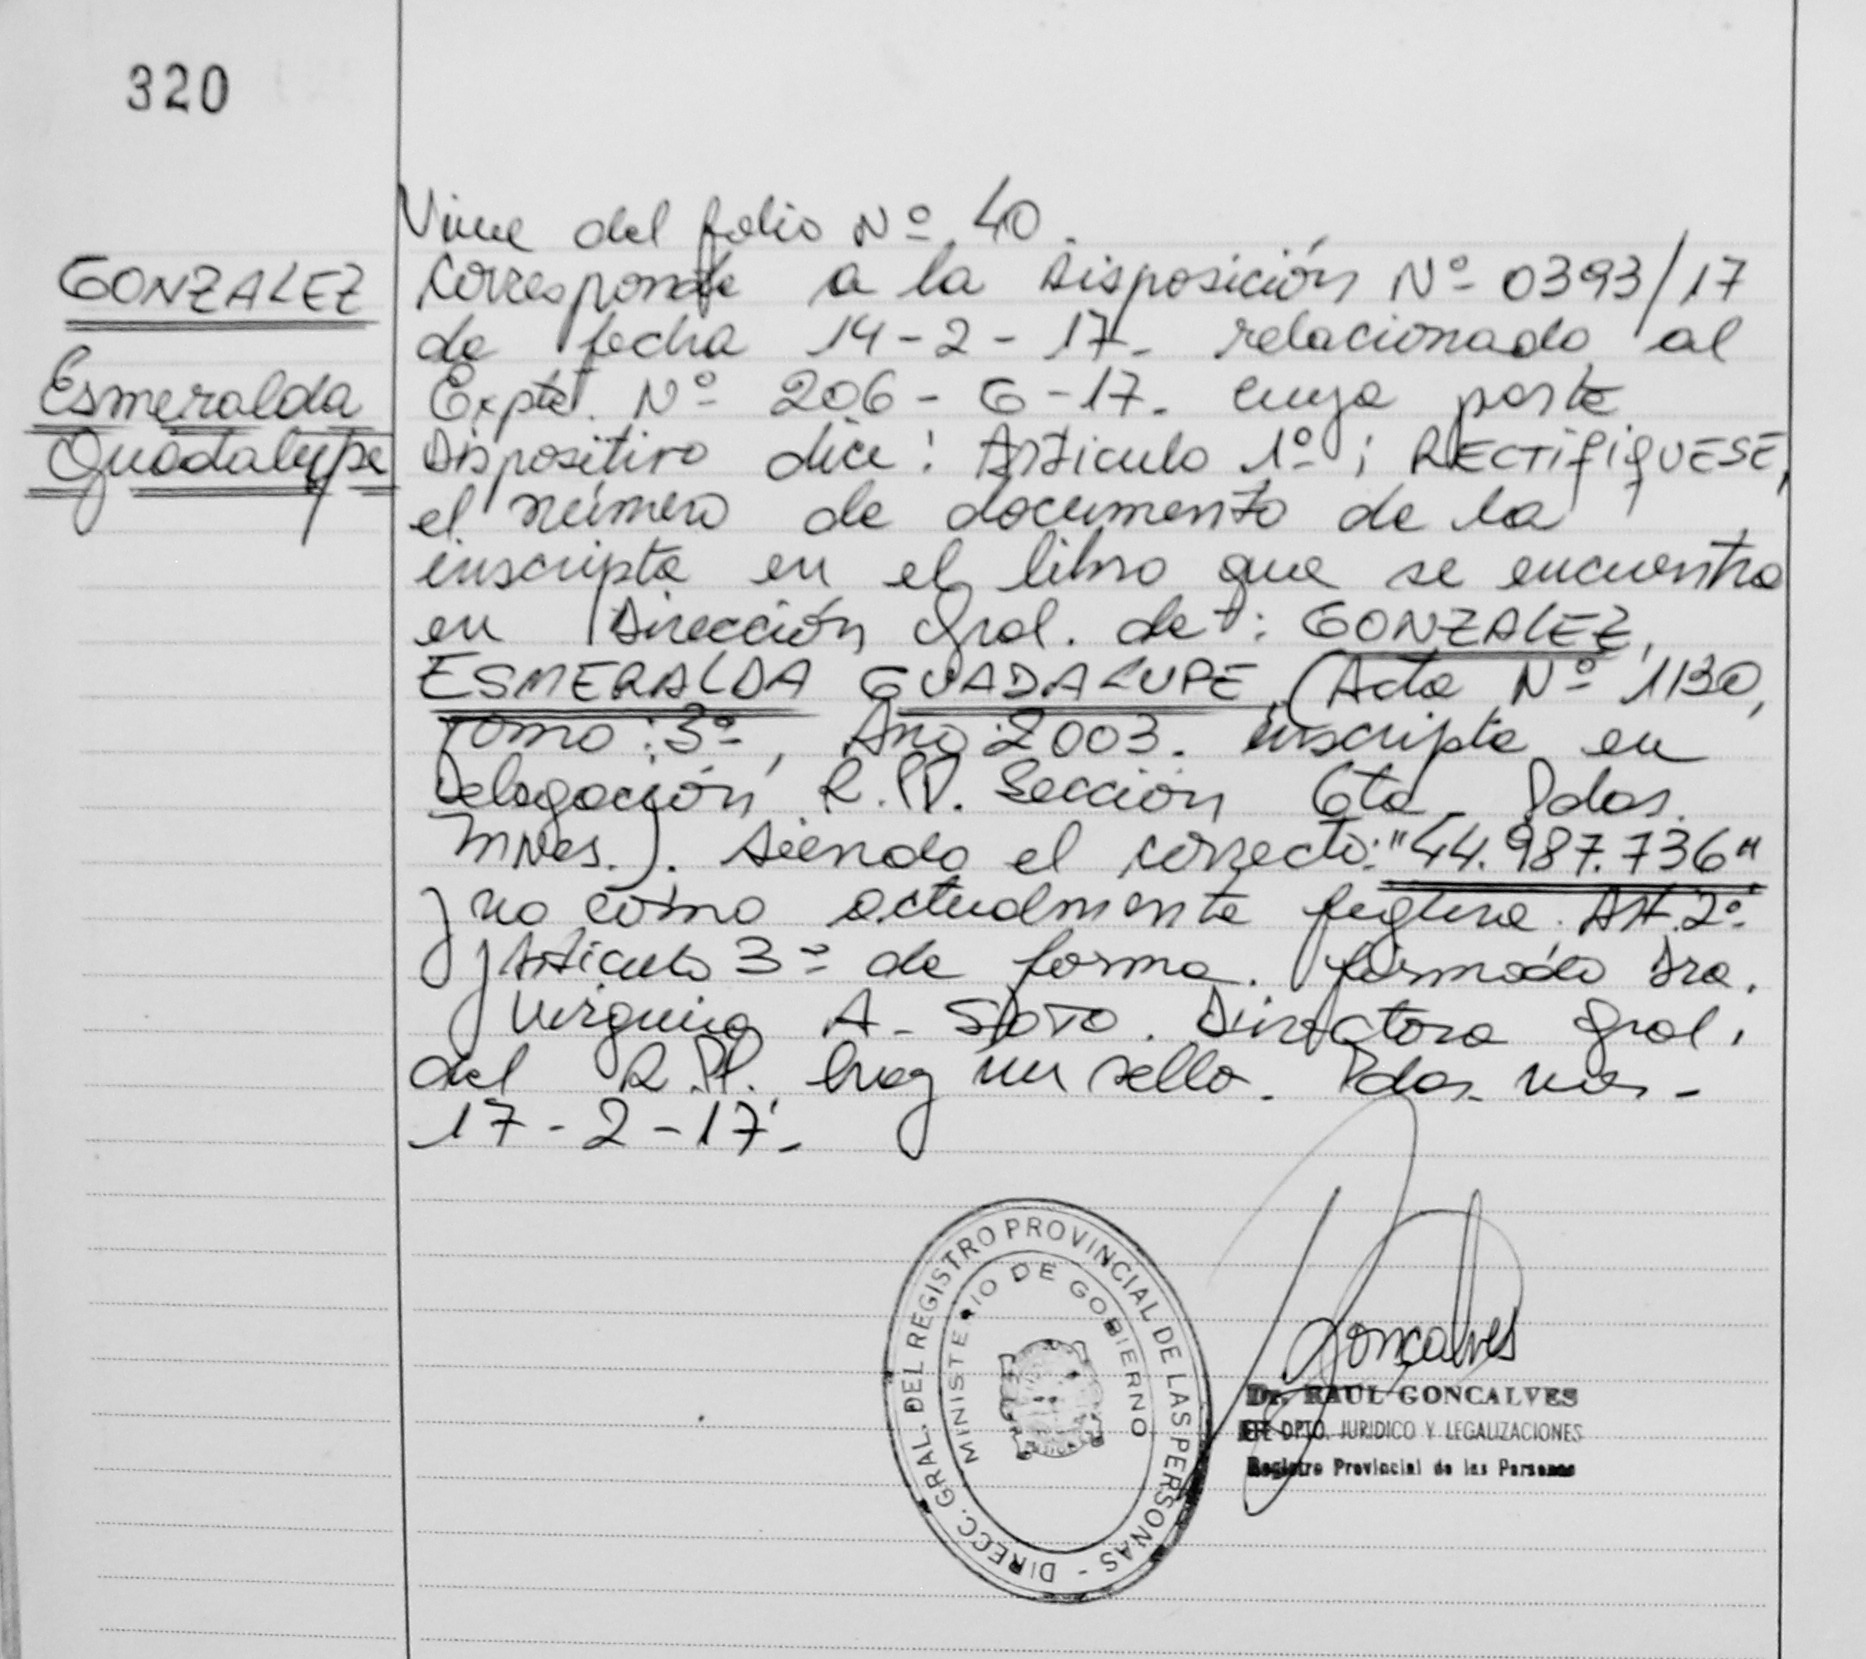 320
GONZALEZ
Esmeralda
Guadalupe
Viene del folio Nº 40.
Corresponde a la Disposición Nº 0393/17
de fecha 14-2-17. relacionado al
Expte. Nº 206-G-17. cuya parte
Dispositiva dice: Articulo 1º; RECTIFIQUESE,
el número de documento de la
inscripta en el libro que se encuentra
en Dirección Gral. de: GONZALEZ,
ESMERALDA GUADALUPE, (Acta Nº 1130,
Tomo: 3º, Año: 2003. inscripta en
Delegación R.P. Sección 6ta. Pdas.
Mnes.). Siendo el correcto: "44.987.736"
y no como actualmente figura. Art. 2º
y Articulo 3º de forma. firmado Dra.
Virginia A. SOTO. Directora Gral.
del R.P. hay un sello. Pdas. mes.-
17-2-17.-
DIRECC. GRAL. DEL REGISTRO PROVINCIAL DE LAS PERSONAS -
MINISTERIO DE GOBIERNO
Goncalves
Dr. RAUL GONCALVES
JEFE DPTO. JURIDICO Y LEGALIZACIONES
Registro Provincial de las Personas